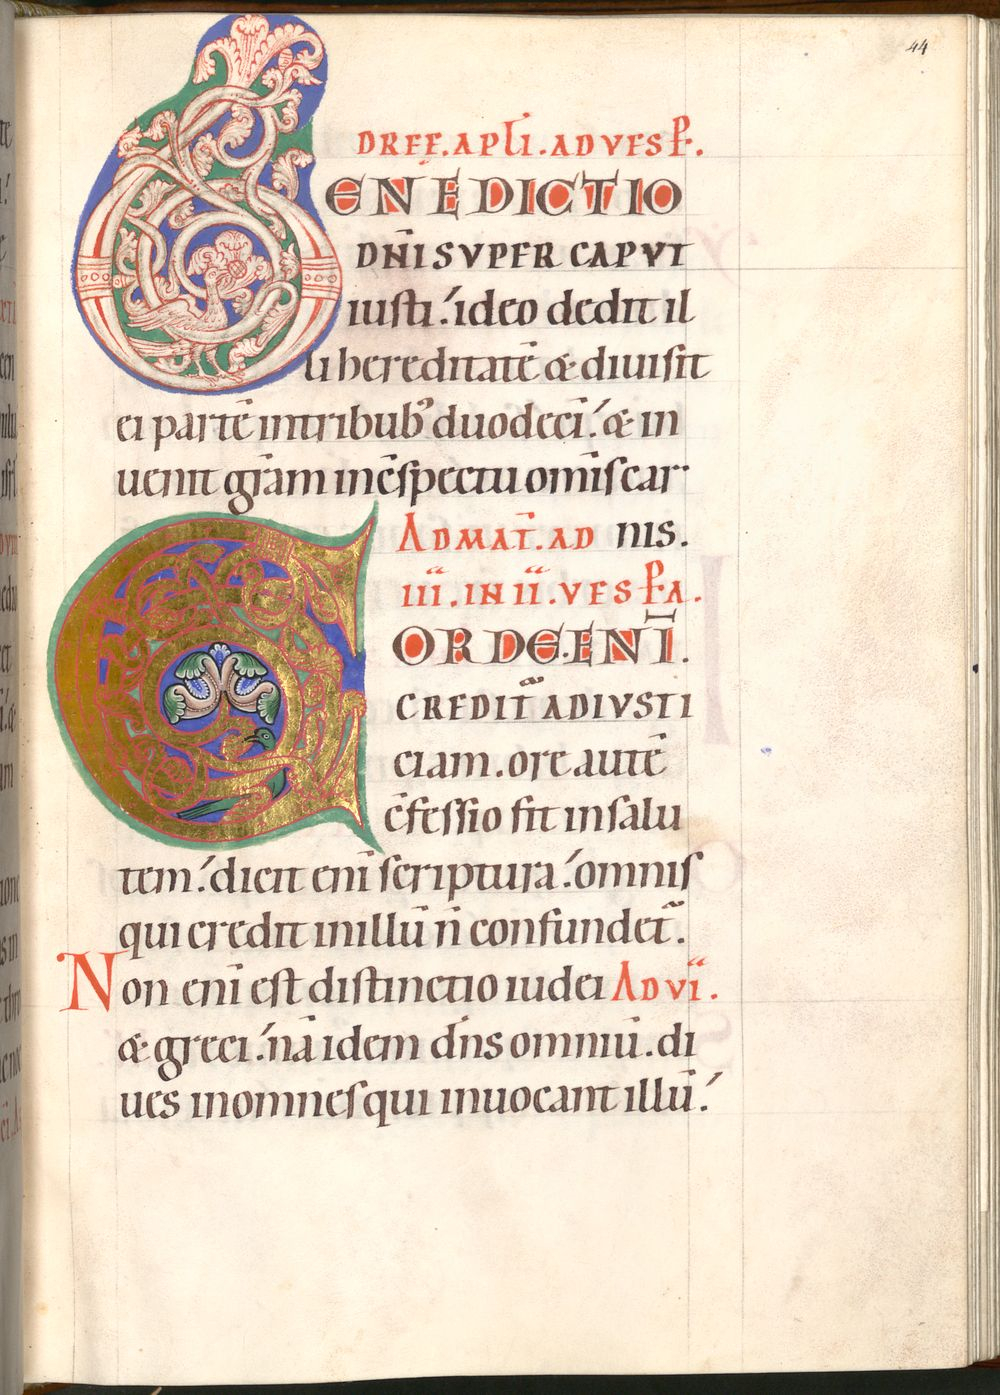 44
DREE. APLI. AD VESP.
BENEDICTIO
DN̄I SVPER CAPVT
iusti. ideo dedit il
li hereditatē & diuisit
ei partē in tribub' duodeci̅. & in
uenit gr̄am in c̄spectu omīs car
AD MAT̄. AD nis.
III. IN II. VESP̄A.
CORDE. ENĪ.
CREDIT̄ AD IVSTI
ciam. ore autē
c̄fessio fit in salu
tem. dicit enī scriptura. omnis
qui credit in illū n̄ confundet̄.
Non enī est distinctio iudei AD VI.
& greci. nā idem dn̄s omniū. di
ues in omnes qui inuocant illū.